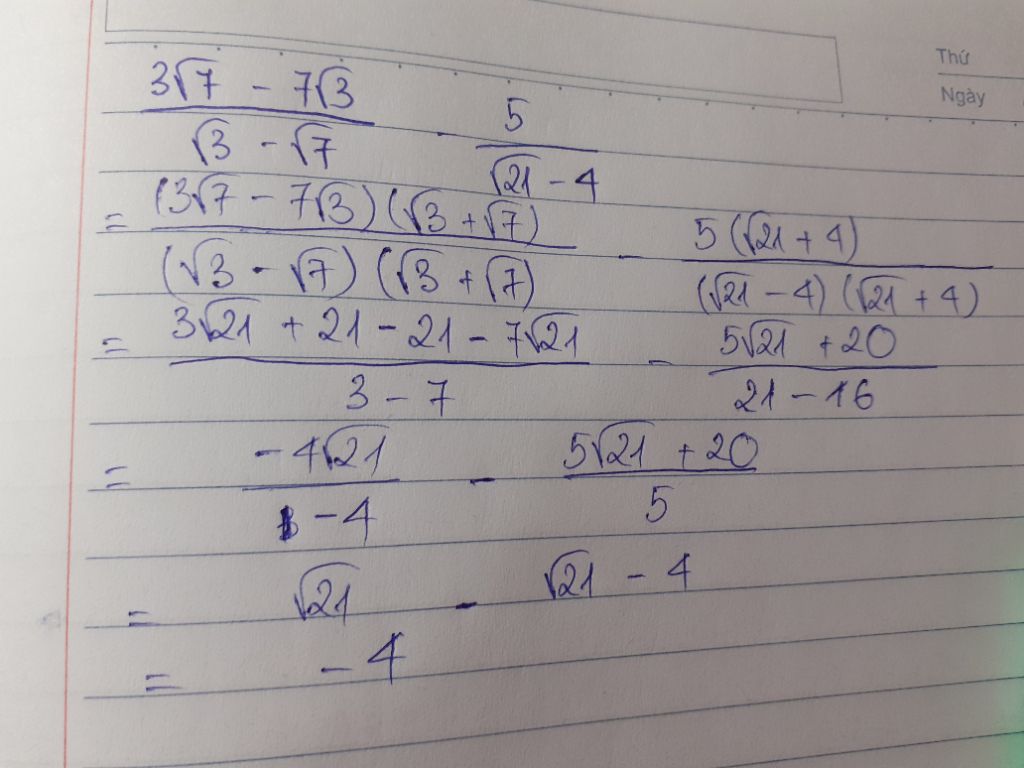 Thứ
Ngày
(3√7 - 7√3)/(√3 - √7) - 5/(√21 - 4)
= ((3√7 - 7√3)(√3 + √7))/((√3 - √7)(√3 + √7)) - (5(√21 + 4))/((√21 - 4)(√21 + 4))
= (3√21 + 21 - 21 - 7√21)/(3 - 7) - (5√21 + 20)/(21 - 16)
= (-4√21)/(-4) - (5√21 + 20)/5
= √21 - √21 - 4
= -4